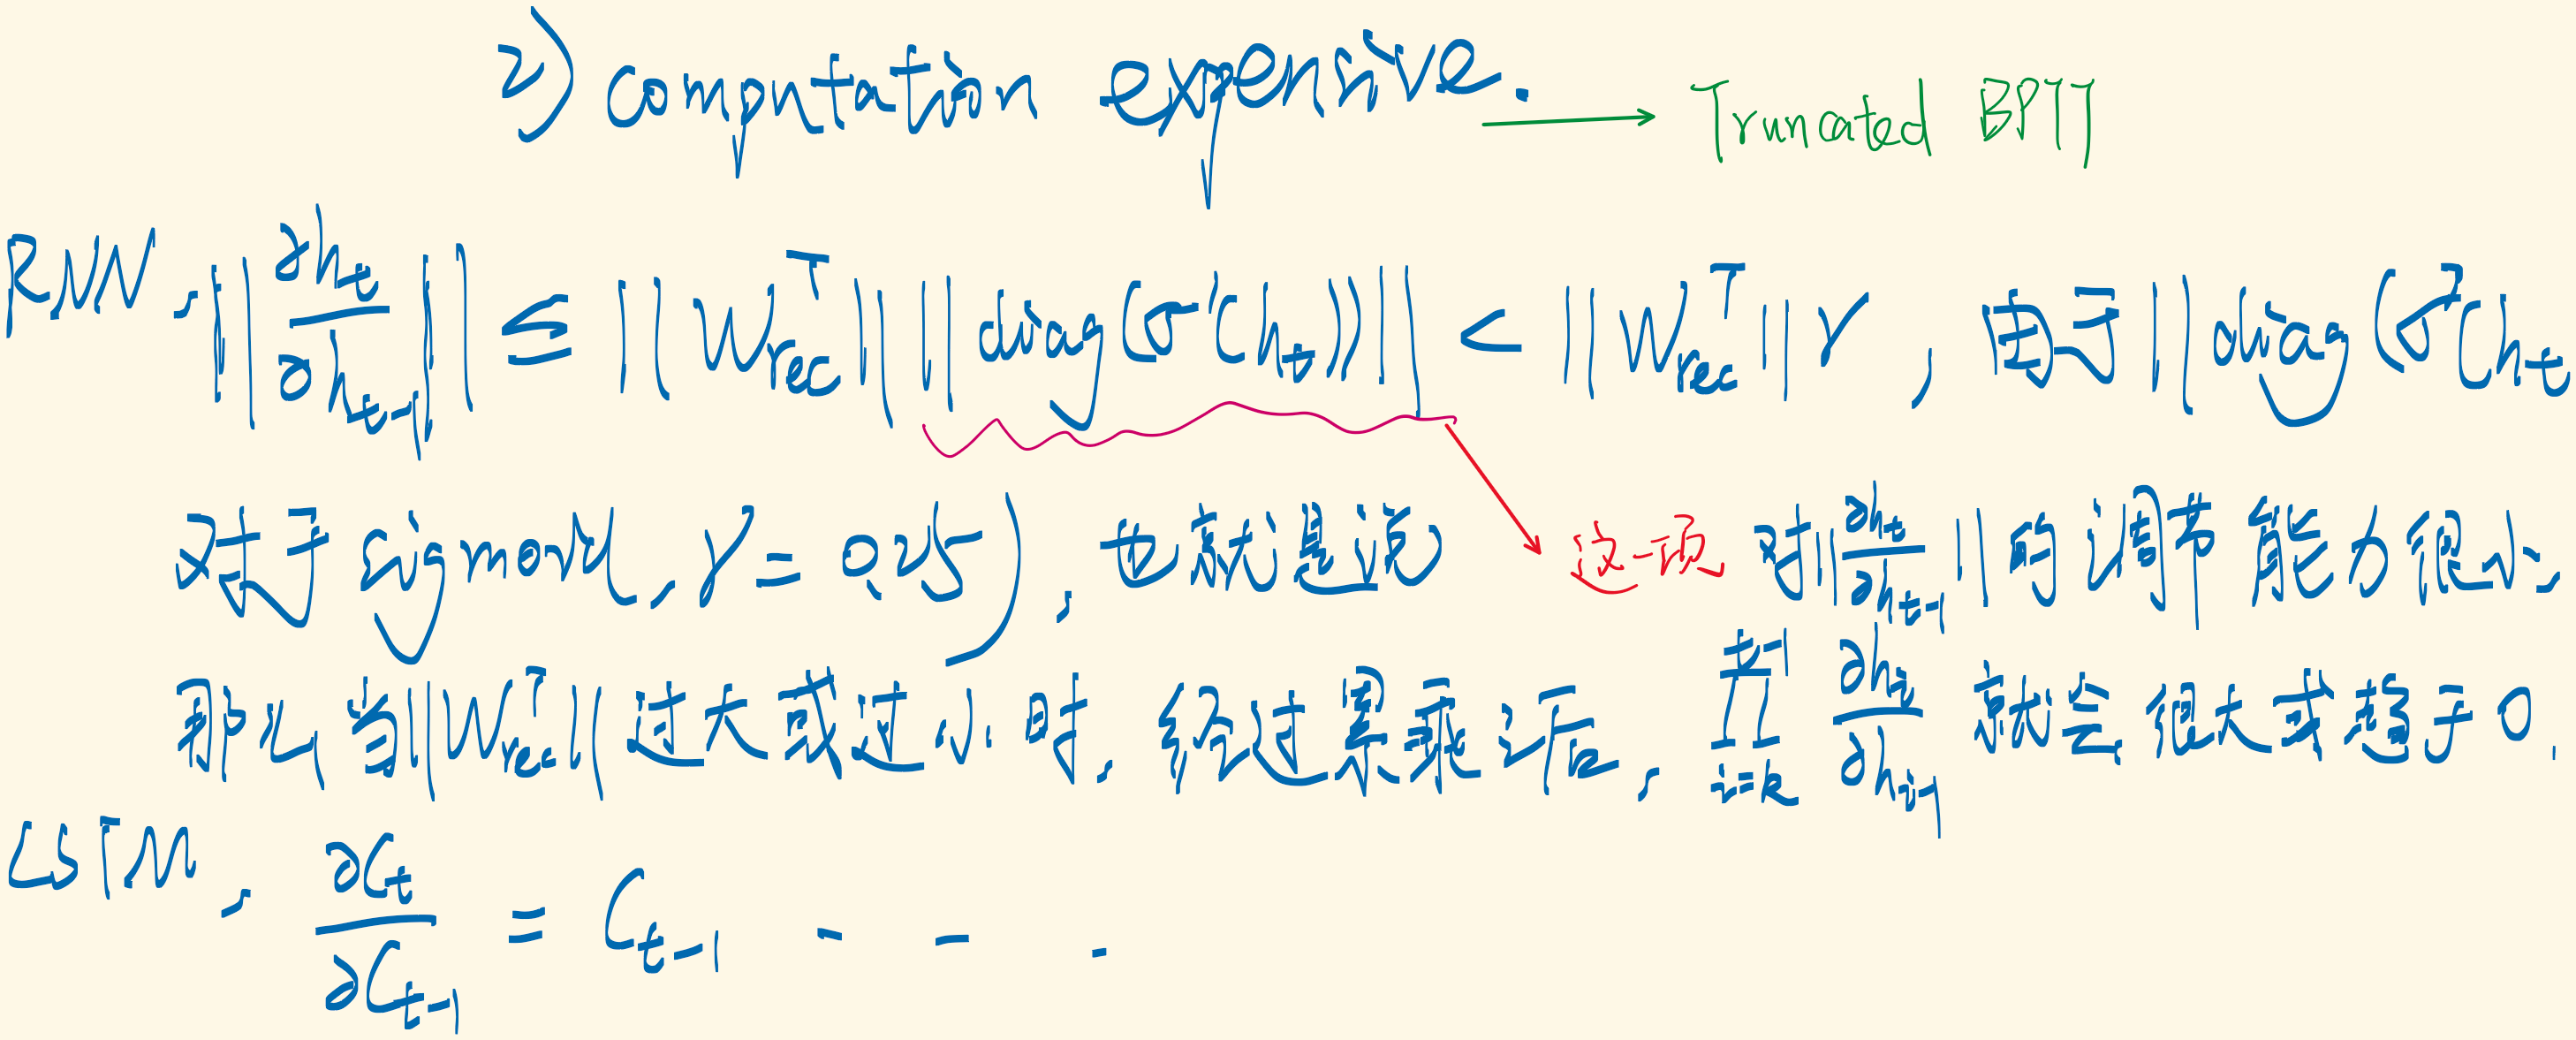 2) computation expensive. → Truncated BPTT
RNN, ||∂h_t/∂h_{t-1}|| ≤ ||W_rec^T|| ||diag(σ'(h_t))|| < ||W_rec^T|| γ, 由于||diag(σ'(h_t
对于sigmoid, γ = 0.25), 也就是说 这一项 对||∂h_t/∂h_{t-1}||的调节能力很小,
那么当||W_rec^T||过大或过小时, 经过累乘后, ∏_{i=k}^{t-1} ∂h_i/∂h_{i-1} 就会很大或趋于0.
LSTM, ∂C_t/∂C_{t-1} = C_{t-1} - - -